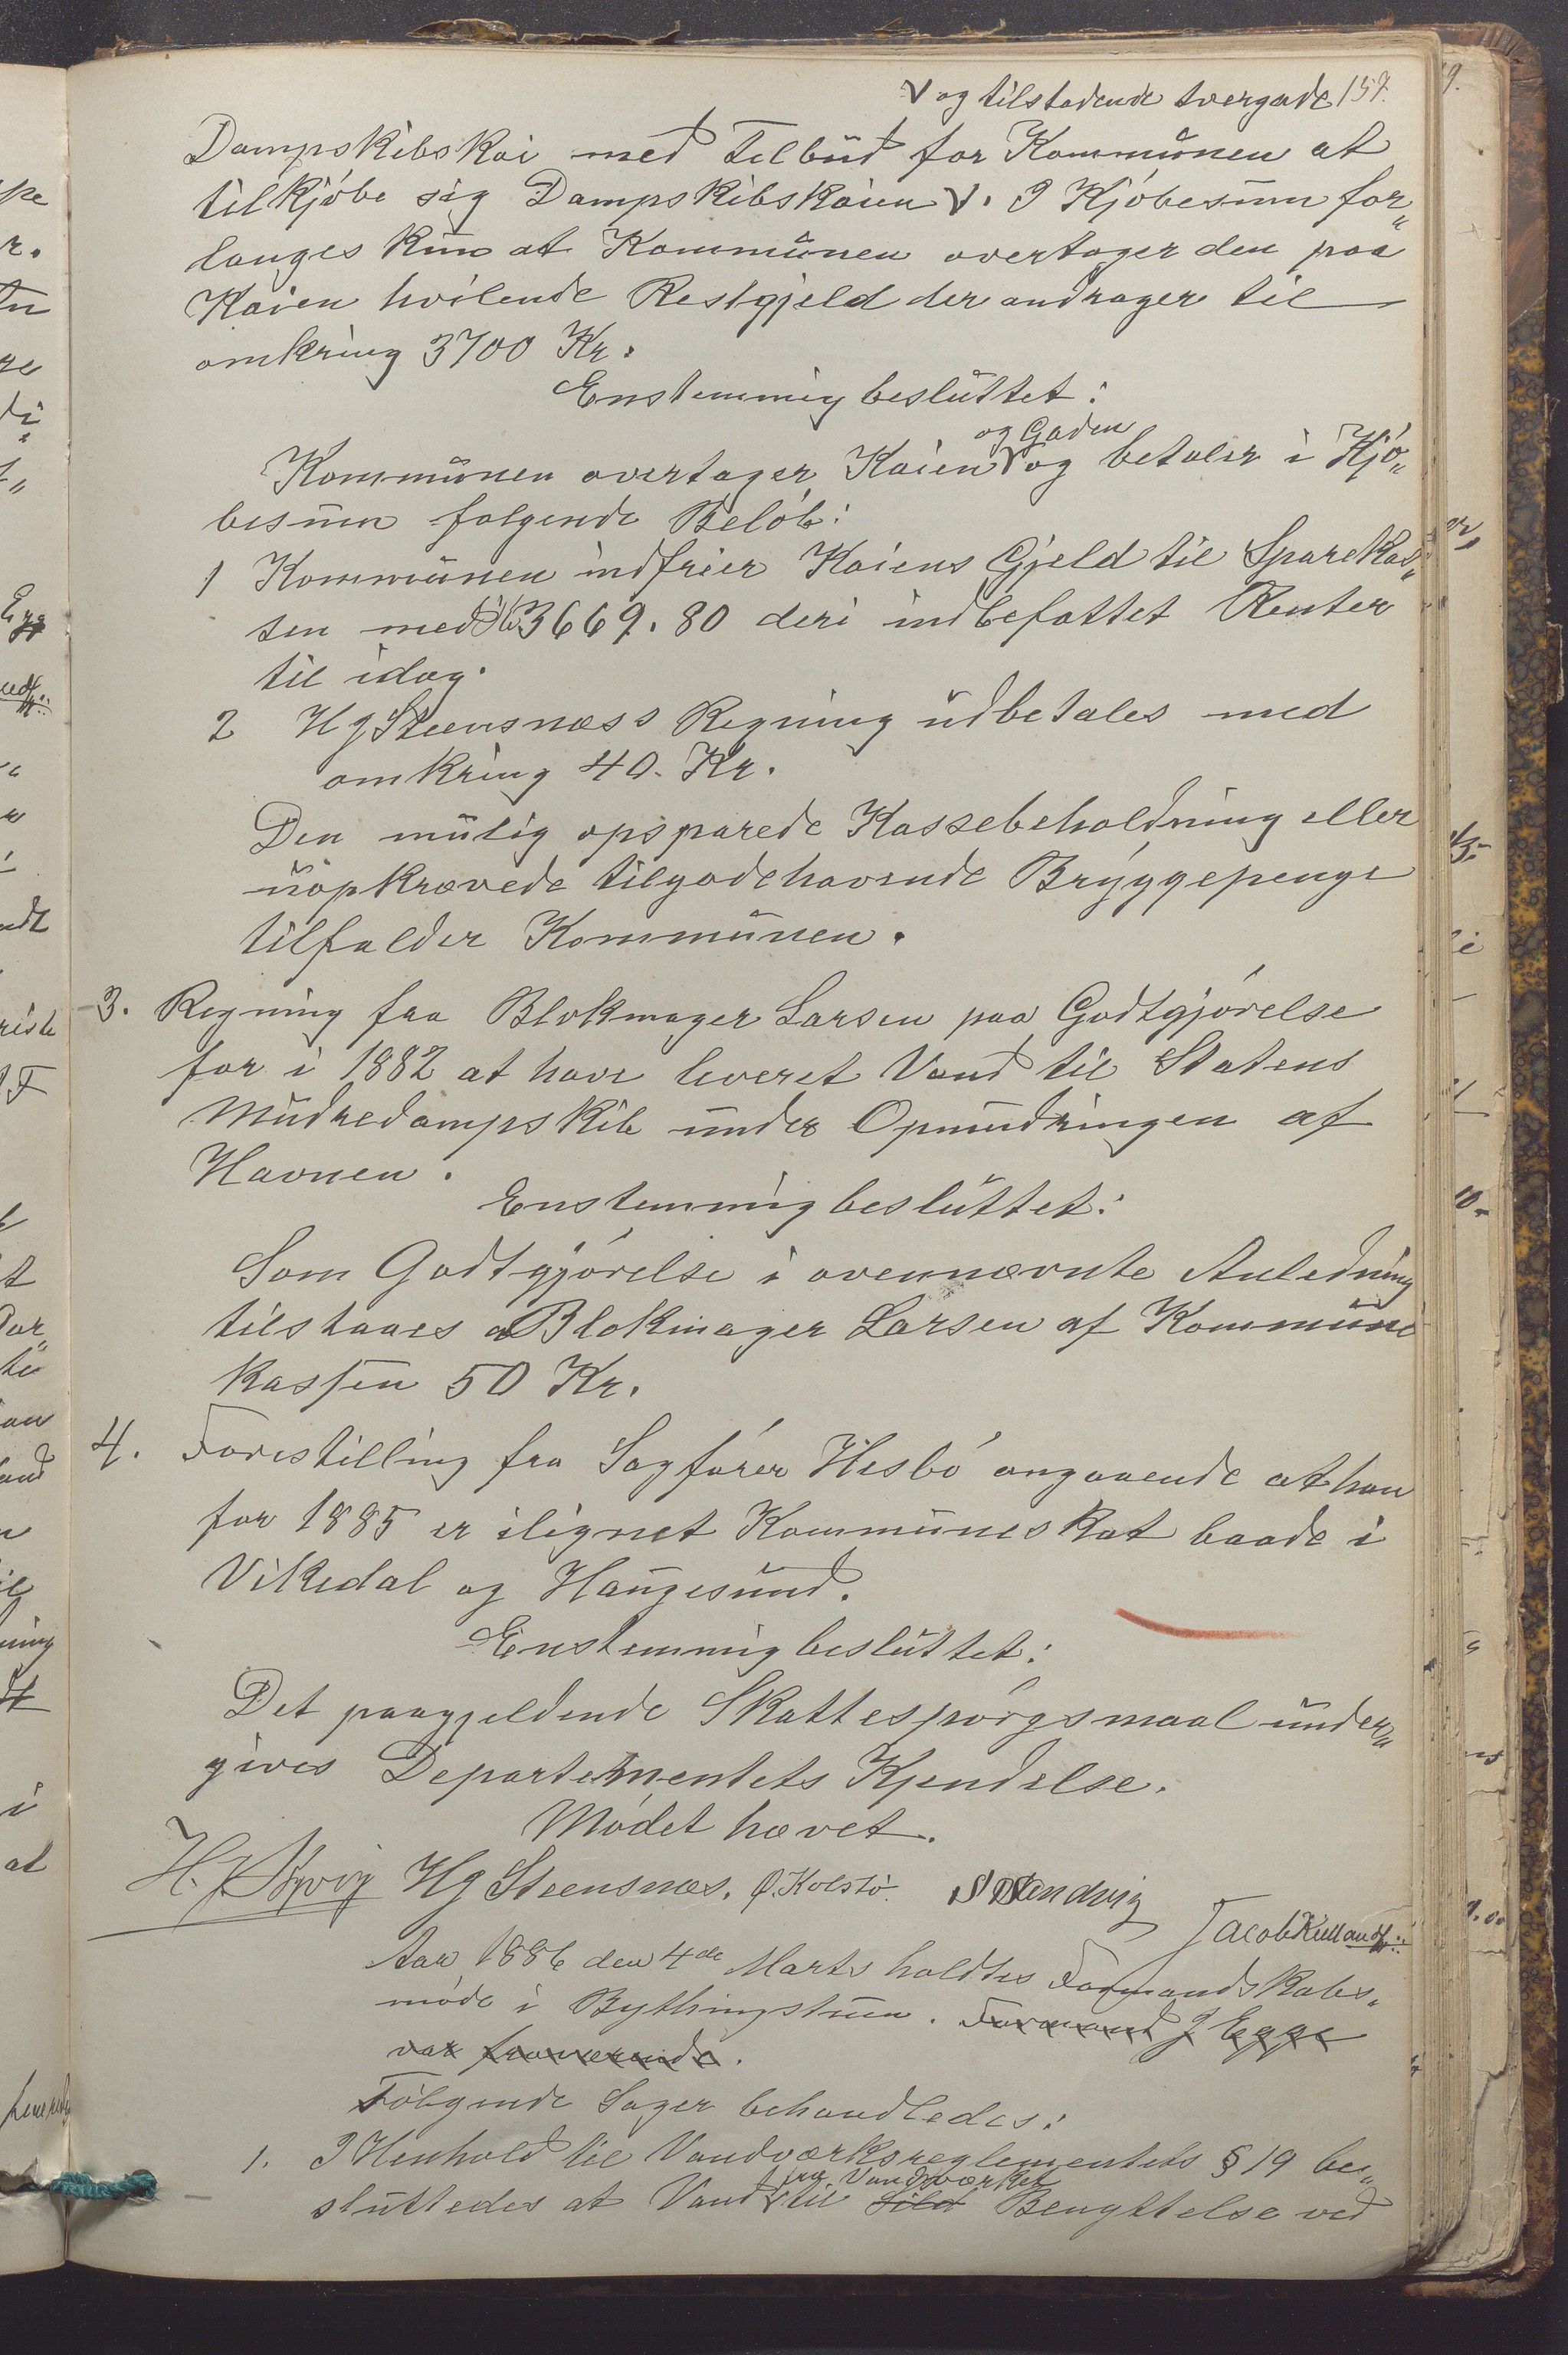 V og tilstødende tvergade 157.
Dampskibskai med Tilbud for Kommunen at
tilkjøbe sig Dampskibskaien V. I Kjøbesum for„
langes kun at Kommunen overtager den paa
Kaien hvilende Restgjeld der andrager til
omkring 3700 Kr.
Enstemmig besluttet:
og Gaden
Kommunen overtager Kaien V og betaler i Kjø„
besum følgende Beløb:
1 Kommunen indfrier Kaiens Gjeld til Sparekas„
sen med 3669.80 deri indbefattet Renter
til idag.
2 H g Steensnæss Regning udbetales med
omkring 40. Kr.
Den mulig opsparede Kassebeholdning eller
uopkrævede tilgodehavende Bryggepenge
tilfalder Kommunen.
3. Regning fra Blokmager Larsen paa Godtgjørelse
for i 1882 at have leveret Vand til Statens
Mudredampskib under Opmudringen af
Havnen.
Enstemmig besluttet:
Som Godtgjørelse i ovennævnte Anledning
tilstaaes Blokmager Larsen af Kommune
kassen 50 Kr.
4. Forestilling fra Sagfører Hesbø angaaende at han
for 1885 er ilignet Kommuneskat baade i
Vikedal og Haugesund.
Enstemmig besluttet:
Det paagjeldende Skattespørgsmaal under„
gives Departementets Kjendelse.
Mødet hævet.
Hg Steensnæs. O. Kolstø. Sandvig
Jacob Kielland
Aar 1886 den 4de Marts holdtes Formandskabs„
møde i Bythingstuen. Formand J Egge
var fraværende.
Følgende Sager behandledes:
1. I Henhold til Vandværksreglementets § 19 be„
fra Vandværket
sluttedes at Vand V til Sild Benyttelse ved